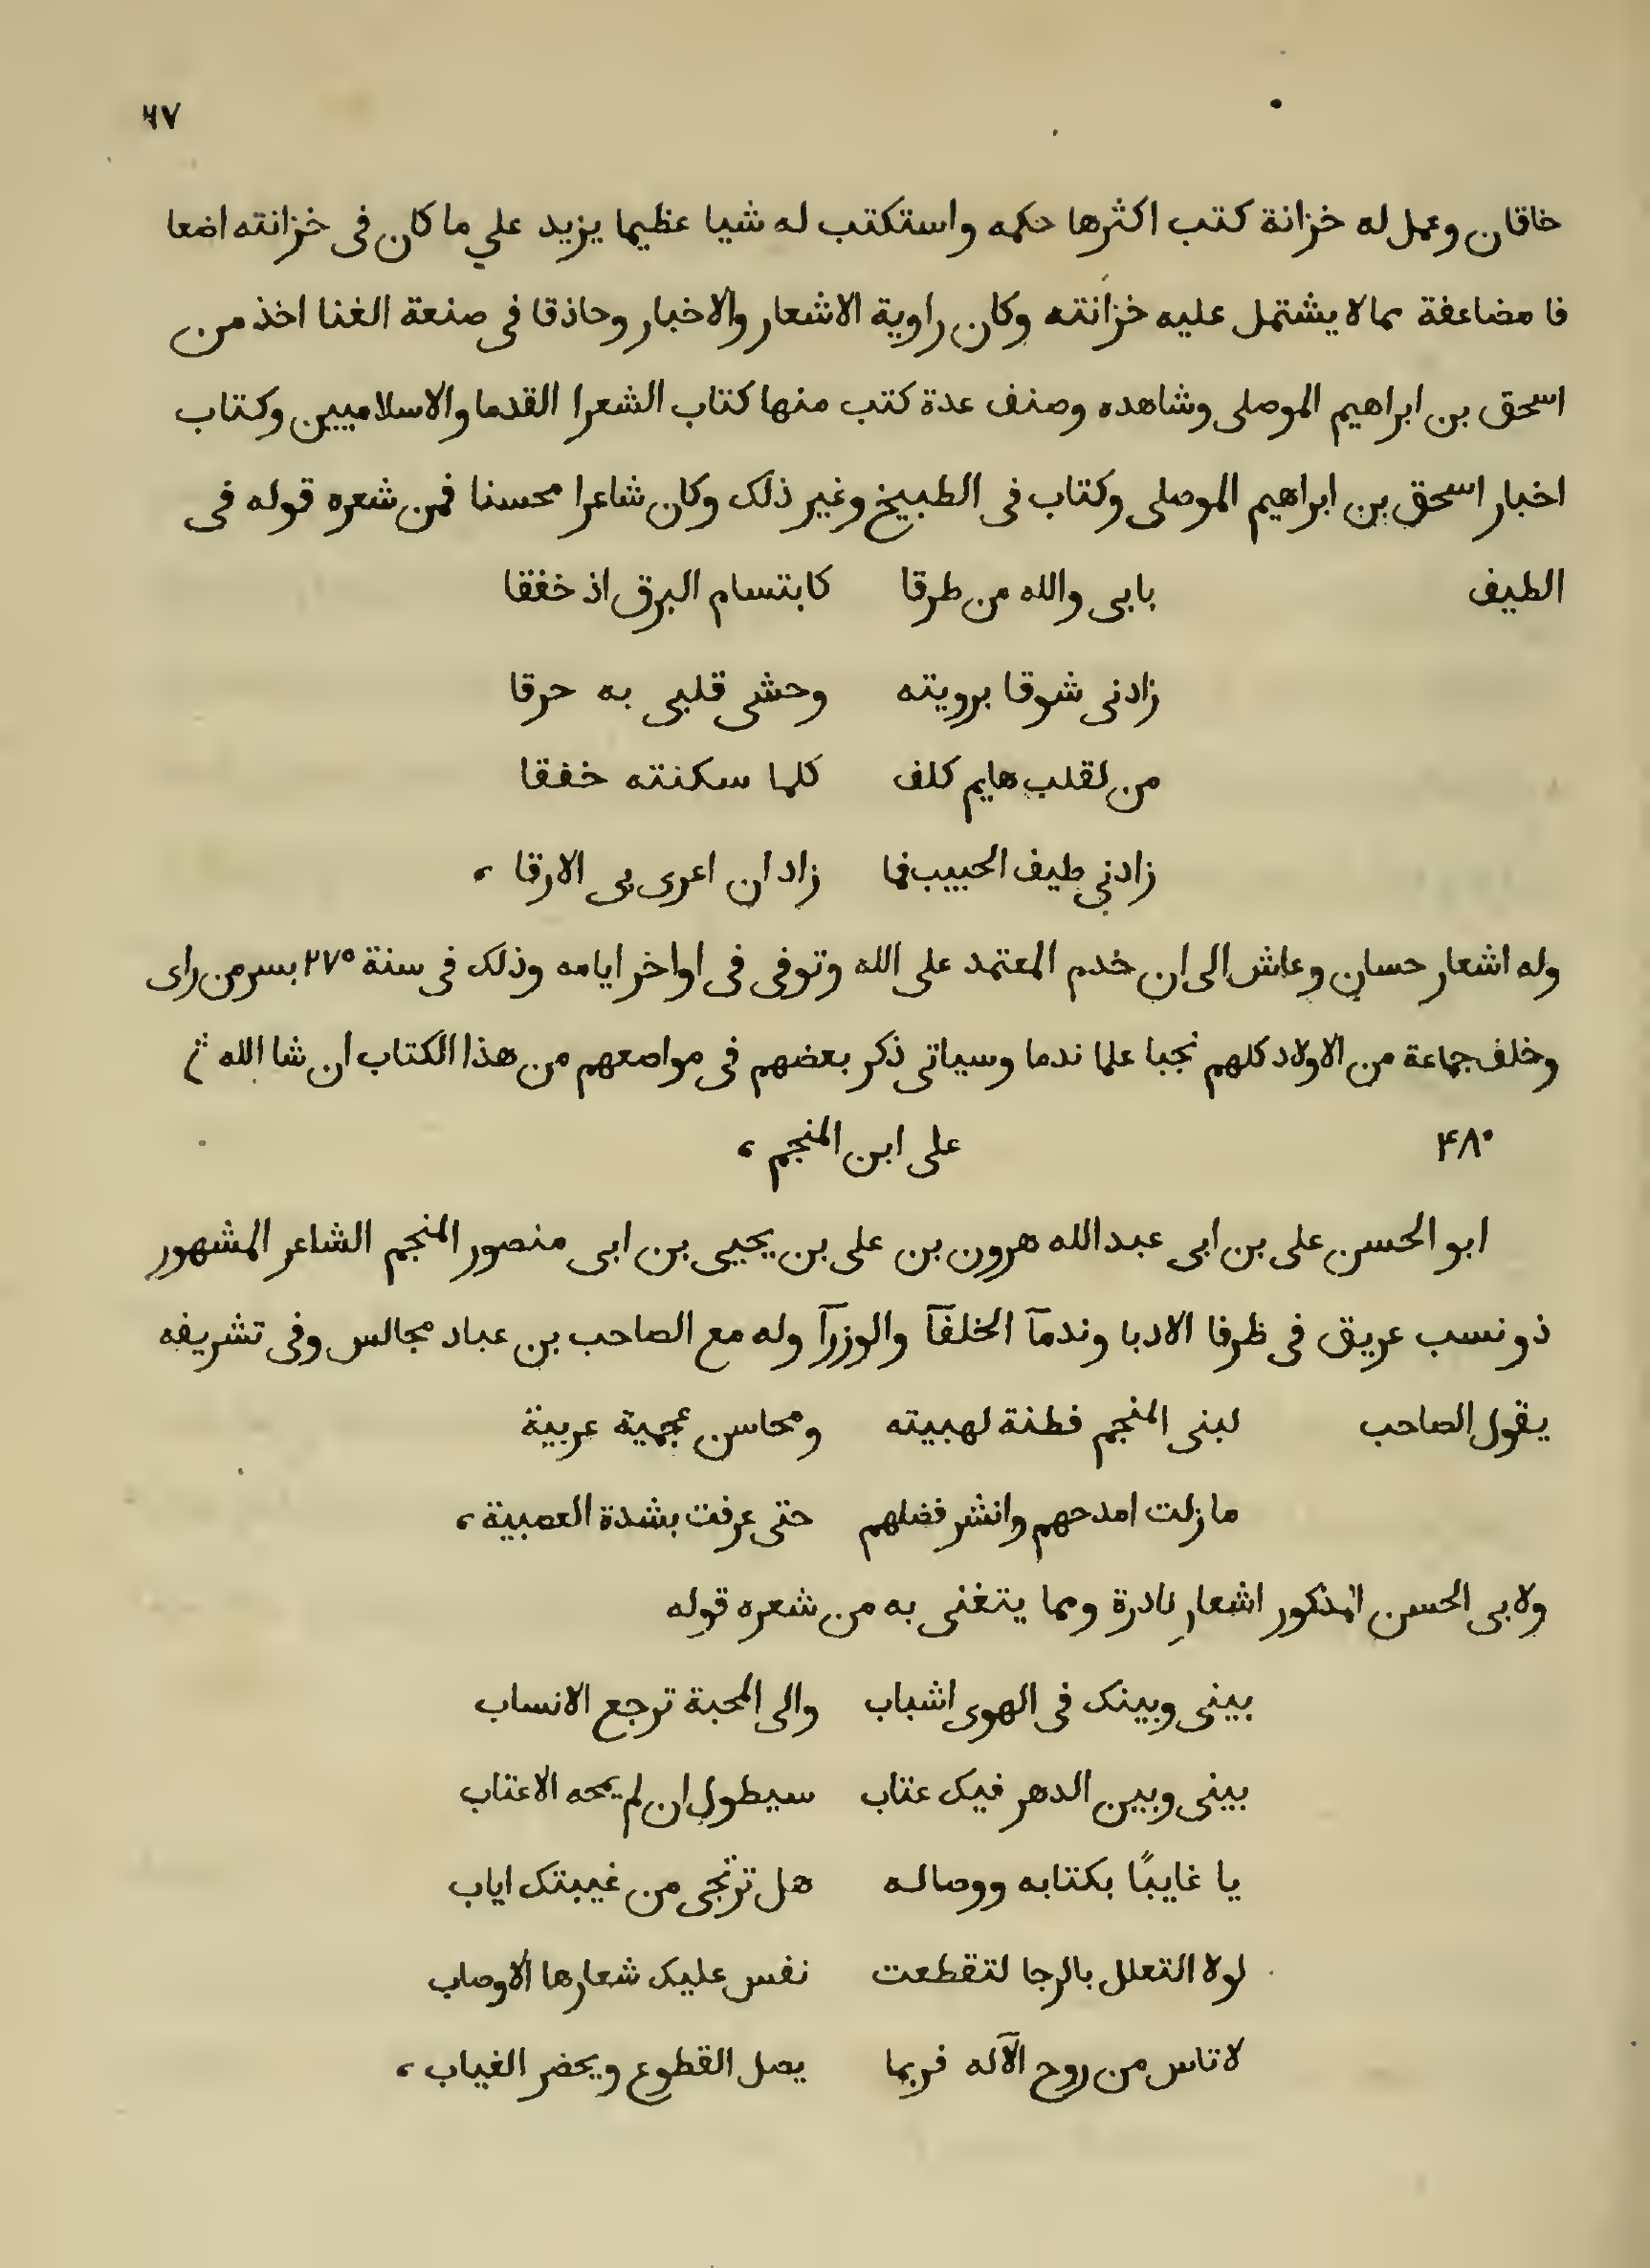 ٦٧
خاقان وعمل له خزانة كتب اكثرها حكمه واستكتب له شيا عظيما يزيد علي ما كان فى خزانته اضعا
فا مضاعفة مما لا يشتمل عليه خزانته وكان راوية الاشعار والاخبار وحاذقا فى صنعة الغنا اخذ من
اسحق بن ابراهيم الموصلى وشاهده وصنف عدة كتب منها كتاب الشعرا القدما والاسلاميين وكتاب
اخبار اسحق بن ابراهيم الموصلى وكتاب فى الطبيخ وغير ذلك وكان شاعرا محسنا فمن شعره قوله فى
الطيف بابى والله من طرقا كابتسام البرق اذ خفقا
زادنى شوقا برويته وحشى قلبى به حرقا
من لقلب هايم كلف كلما سكنته خفقا
زادني طيف الحبيب فما زاد ان اغرى بى الارقا ،
وله اشعار حسان وعاش الى ان خدم المعتمد على الله وتوفى فى اواخر ايامه وذلك فى سنة ٢٧٥ بسر من راى
وخلف جماعة من الاولاد كلهم نجبا علما ندما وسياتى ذكر بعضهم فى مواضعهم من هذا الكتاب ان شا الله
۴٨٠ على ابن المنجم ،
ابو الحسن على بن ابى عبد الله هرون بن على بن يحيى بن ابى منصور المنجم الشاعر المشهور
ذو نسب عريق فى ظرفا الادبا وندمآ الخلفآ والوزرآ وله مع الصاحب بن عباد مجالس وفى تشريفه
يقول الصاحب لبنى المنجم فطنة لهبيته ومحاسن عجمية عربية
ما زلت امدحهم وانشر فضلهم حتى عرفت بشدة العصبية ،
ولابى الحسن المذكور اشعارِ نادرة ومما يتغنى به من شعره قوله
بينى وبينك فى الهوى اشباب والى المحبة ترجع الانساب
بينى وبين الدهر فيك عتاب سيطول ان لم يمحه الاعتاب
يا غايبًا بكتابه ووصاله هل ترتجى من غيبتك اياب
لولا التعلل بالرجا لتقطعت نفس عليك شعارها الاوصاب
لا تاس من روح الآله فربما يصل القطوع ويحضر الغياب ،